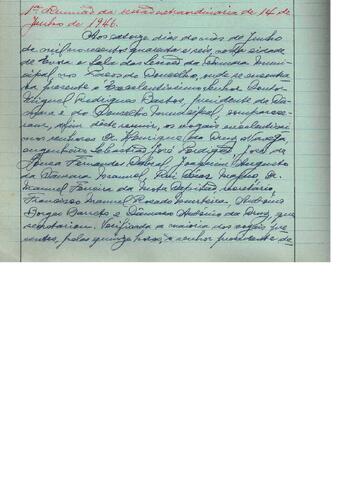 1ª Reunião da sessão extraordinária de 14 de
Junho de 1946.
Aos catorze dias do mês de Junho
de mil novecentos quarenta e seis, nesta cidade
de e Sala das Sessões da Câmara Muni-
cipal nos Paços do Concelho, onde se encontra
va presente o Excelentíssimo Senhor Doutor
Miguel Rodrigues Bastos, presidente da Câ-
mara e do Conselho Municipal, comparece-
ram, afim de reunir, os vogais excelentíssi-
mos senhores Dr. Henrique da
engenheiro Sebastião José Perdigão, José de
Sousa Fernandes Joaquim Augusto
da Câmara Manuel,
Manuel Ferreira da secretário,
Francisco Manuel Rosado António
Borges Barreto e António da Cruz, que
secretariou. Verificada a maioria dos vogais pre-
sentes, pelas quinze horas, o senhor presidente de-